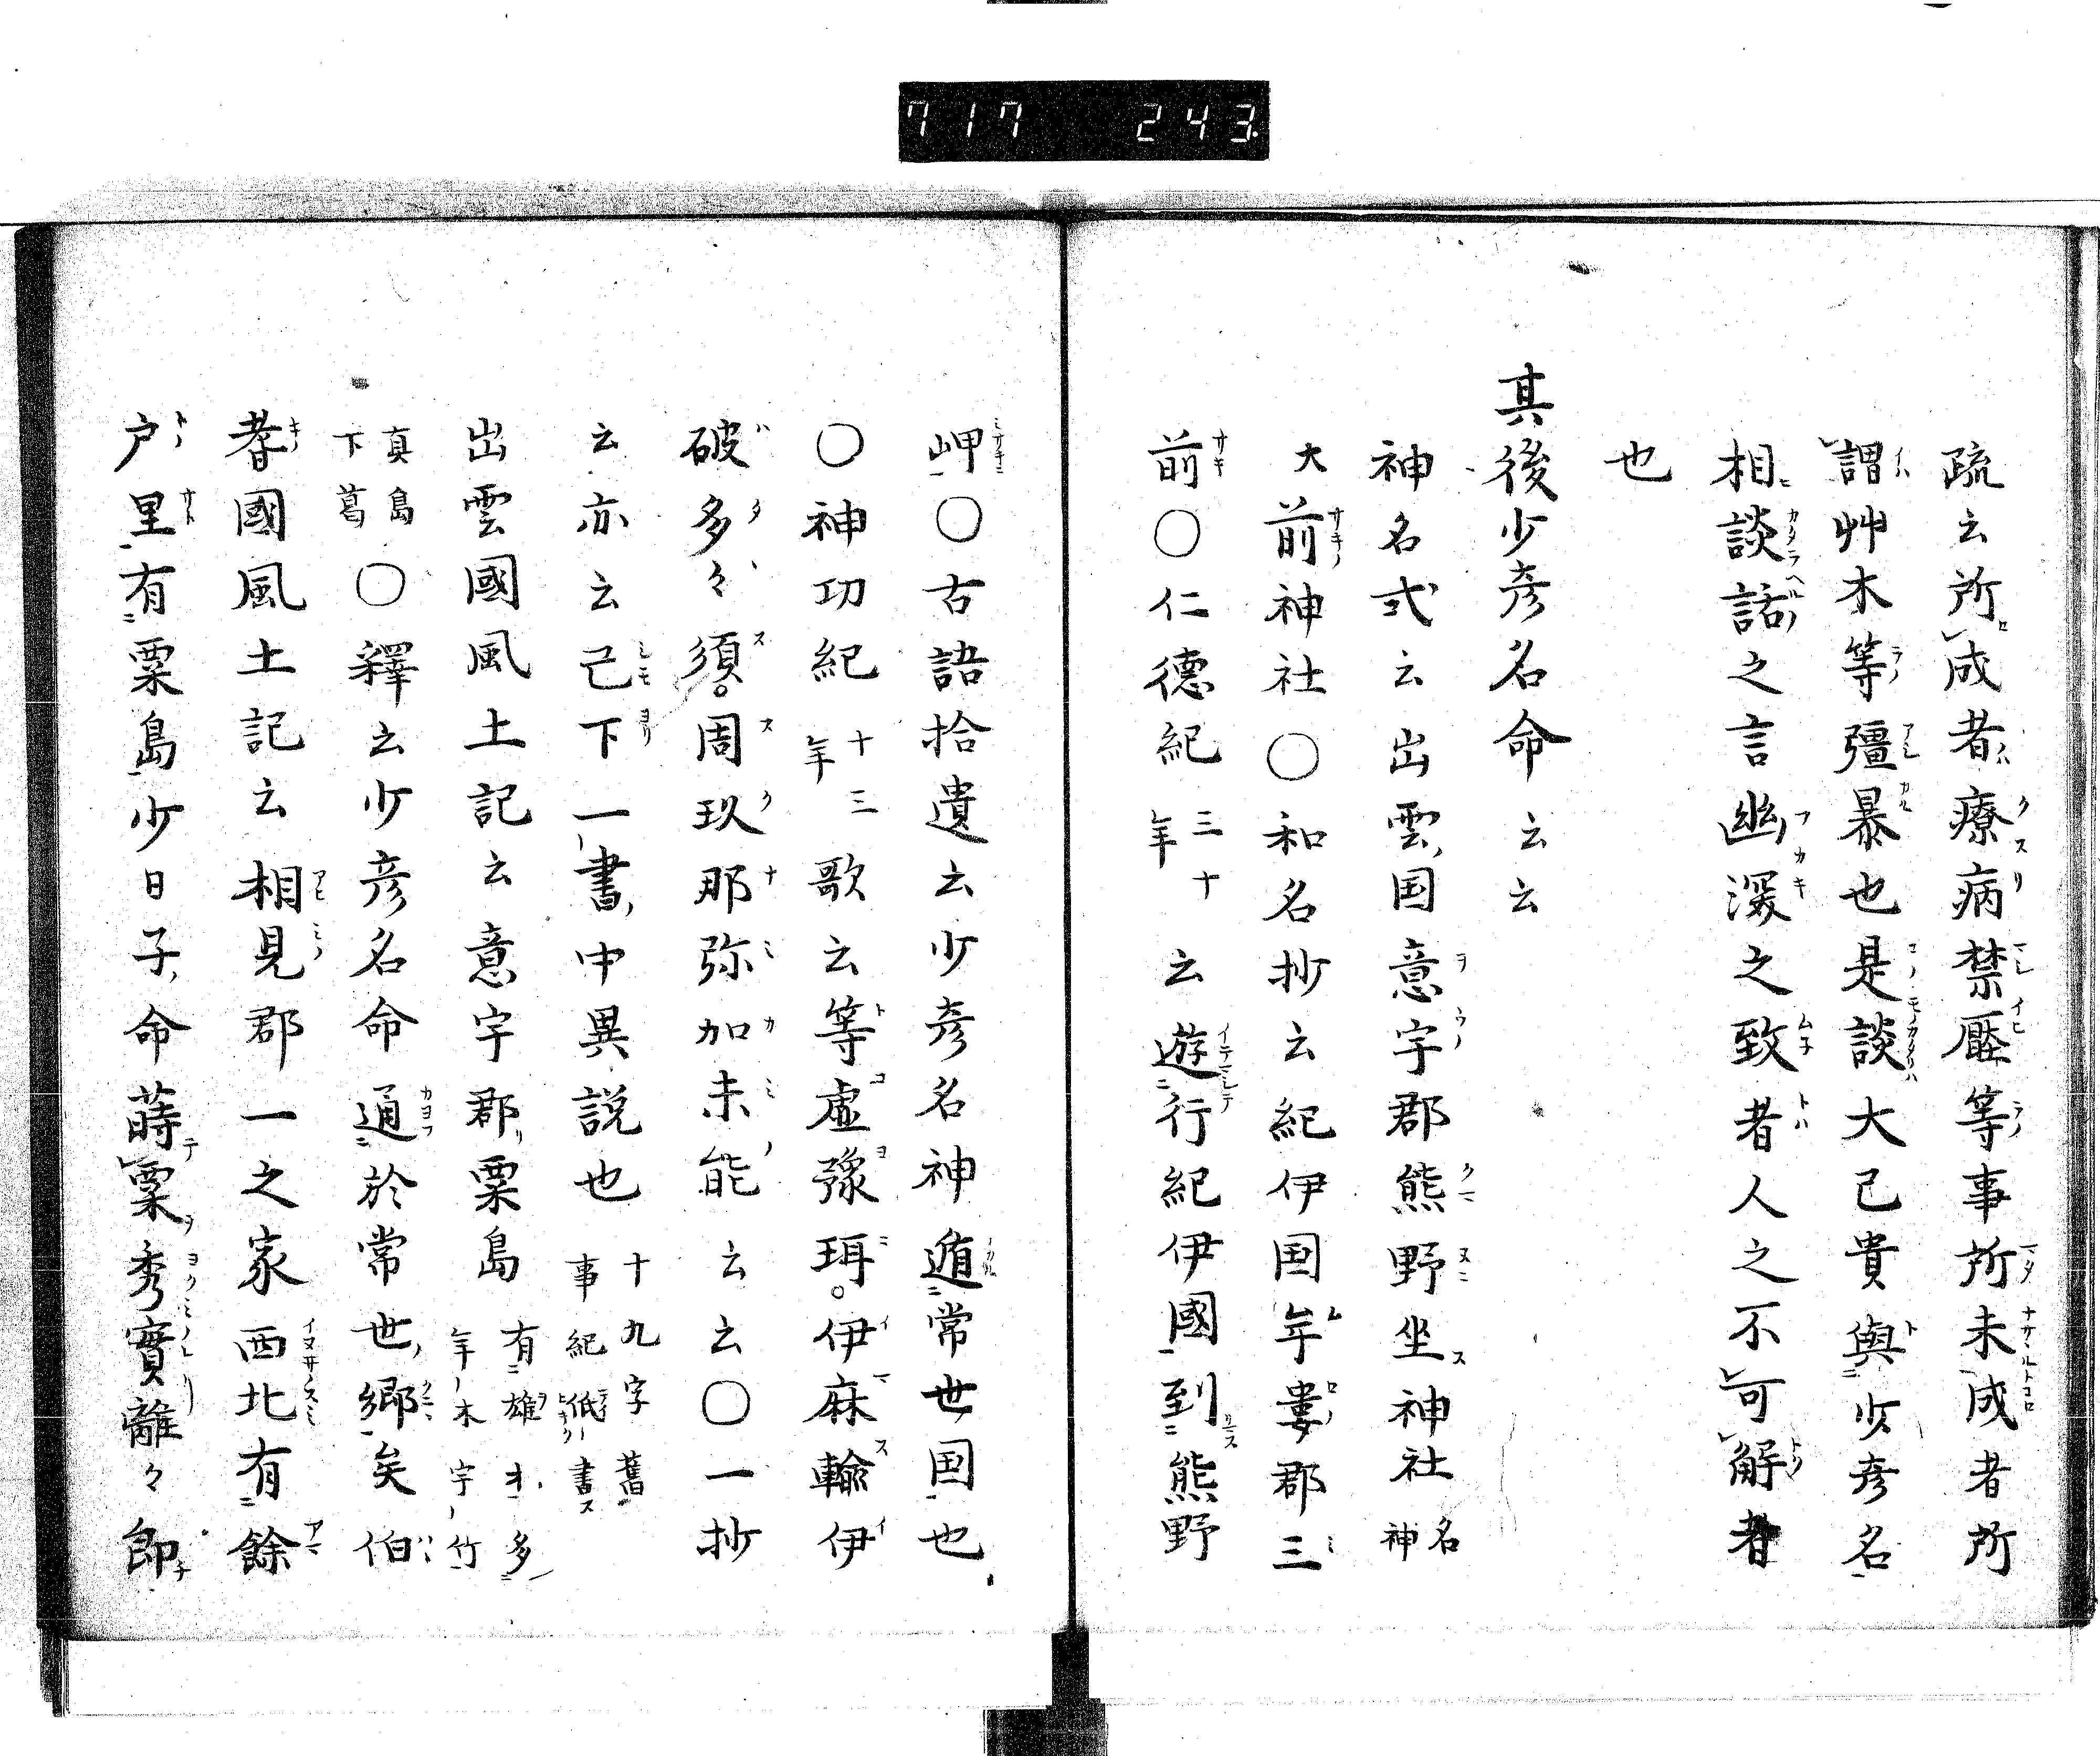 717 243
疏云所成者療病禁厭等事所未成者所
謂艸木等彊暴也是談大己貴與少彦名
相談話之言幽深之致者人之不可解者
也
其後少彦名命云云
神名式云出雲国意宇郡熊野坐神社名神
大前神社〇和名抄云紀伊国牟婁郡三
前〇仁徳紀三十年云遊行紀伊國到熊野
岬〇古語拾遺云少彦名神遁常世国也
〇神功紀十三年歌云等虚豫珥。伊麻輸伊
破多々須。周玖那弥加未能云云〇一抄
云亦云己下一書中異説也十九字舊事紀低書ス
出雲國風土記云意宇郡粟島有
真島下葛〇釋云少彦名命通於常世郷矣伯
耆國風土記云相見郡一之家西北有餘
戸里有粟島少日子命蒔粟秀實離々即